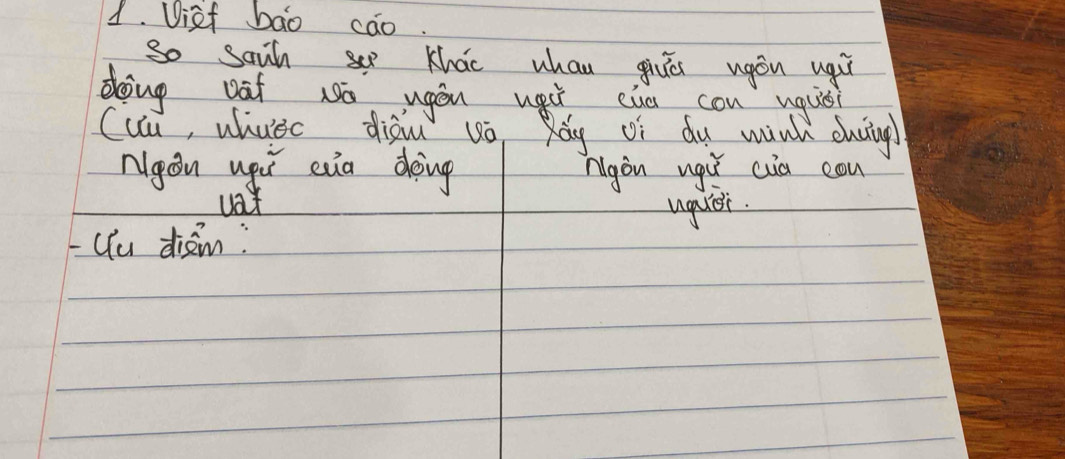 1. Viết báo cáo.
So sánh sự khác nhau giữa ngôn ngữ
động vật và ngôn ngữ của con người
(ưu, nhược điểm và lấy ví dụ minh chứng).
Ngôn ngữ của động vật
Ngôn ngữ của con người.
- Ưu điểm: